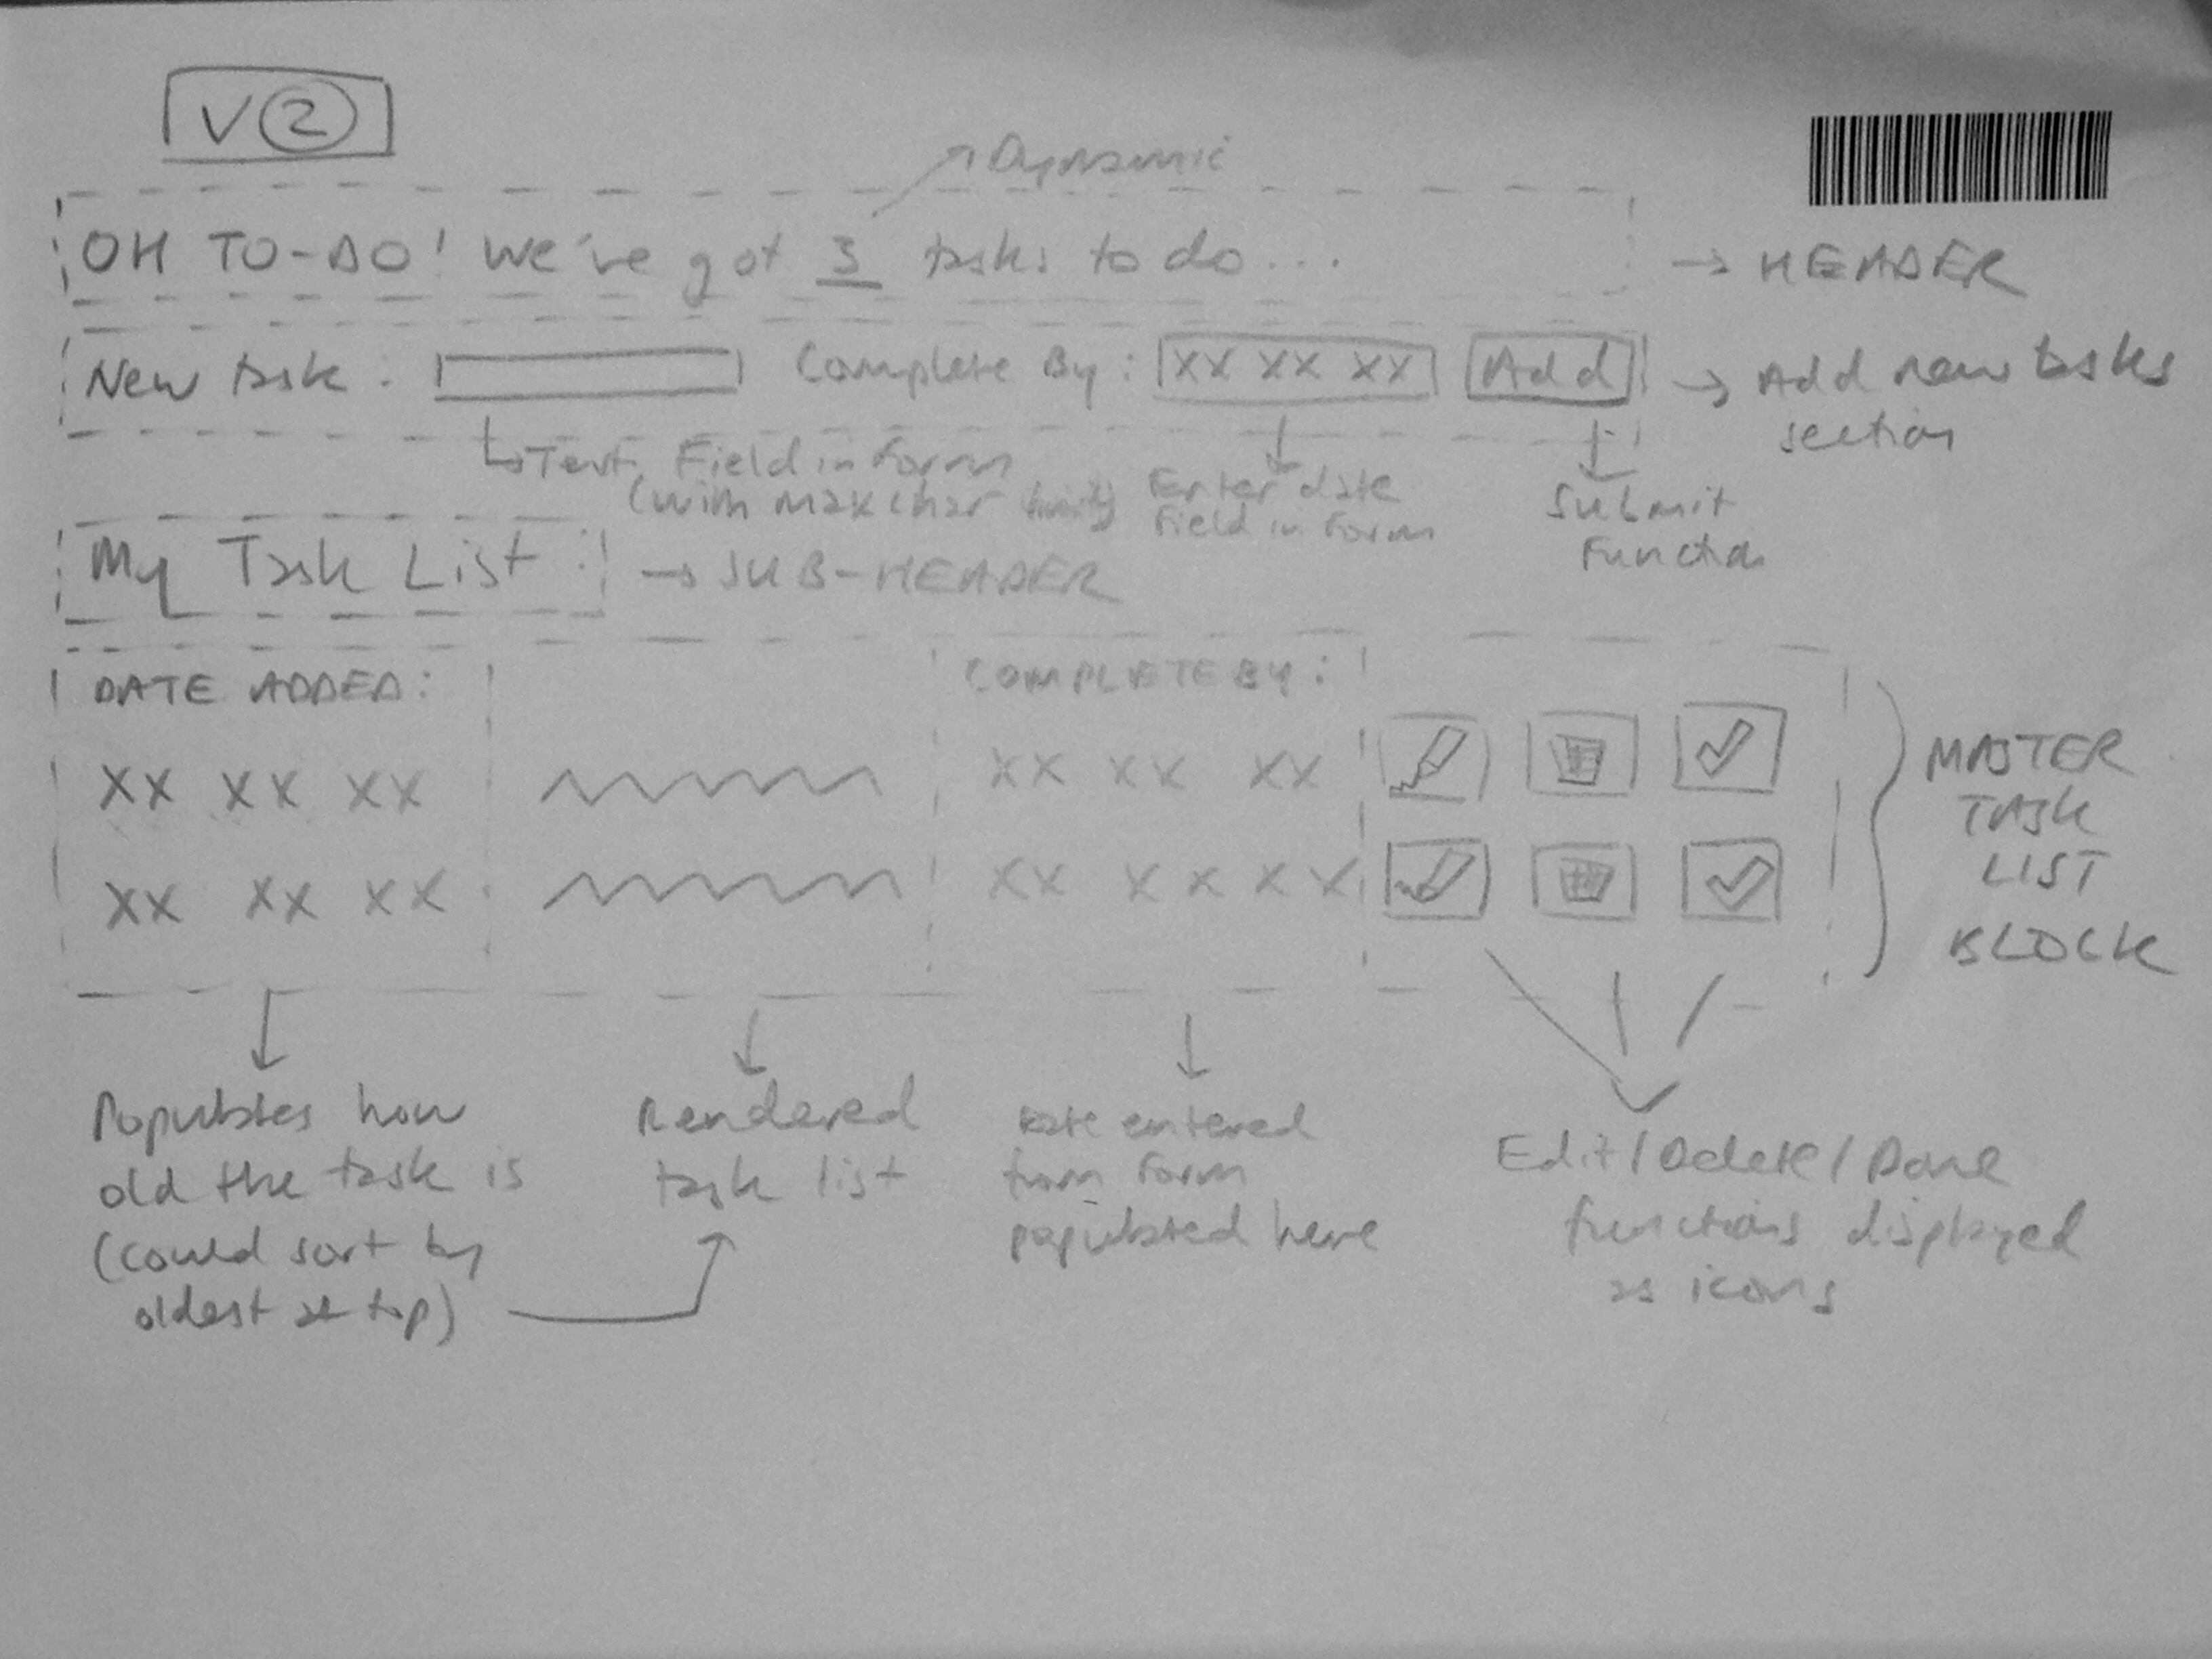 V2
Dynamic
OH TO-DO! We've got 3 tasks to do...
→ HEADER
New task: Complete By: XX XX XX Add
→ Add new tasks
section
Text Field in Form
(with max char limit)
Enter date
Field in Form
Submit
Function
My Task List :
→ SUB-HEADER
DATE ADDED: COMPLETE BY:
XX XX XX XX XX XX
XX XX XX XX X X X X
MASTER
TASK
LIST
BLOCK
Populates how
old the task is
(could sort by
oldest at top)
Rendered
task list
Date entered
from Form
populated here
Edit/Delete/Done
functions displayed
as icons